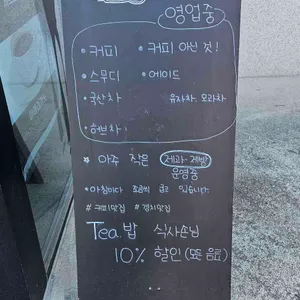 영업중
· 커피 · 커피 아닌 것!
· 스무디 · 에이드
· 국산차 유자차. 모과차
· 허브차
* 아주 작은 제과·제빵
운영중
· 아침마다 조금씩 굽고 있습니다.
# 커피맛집 # 경치맛집
Tea 밥 식사손님
10% 할인 (모든 음료)